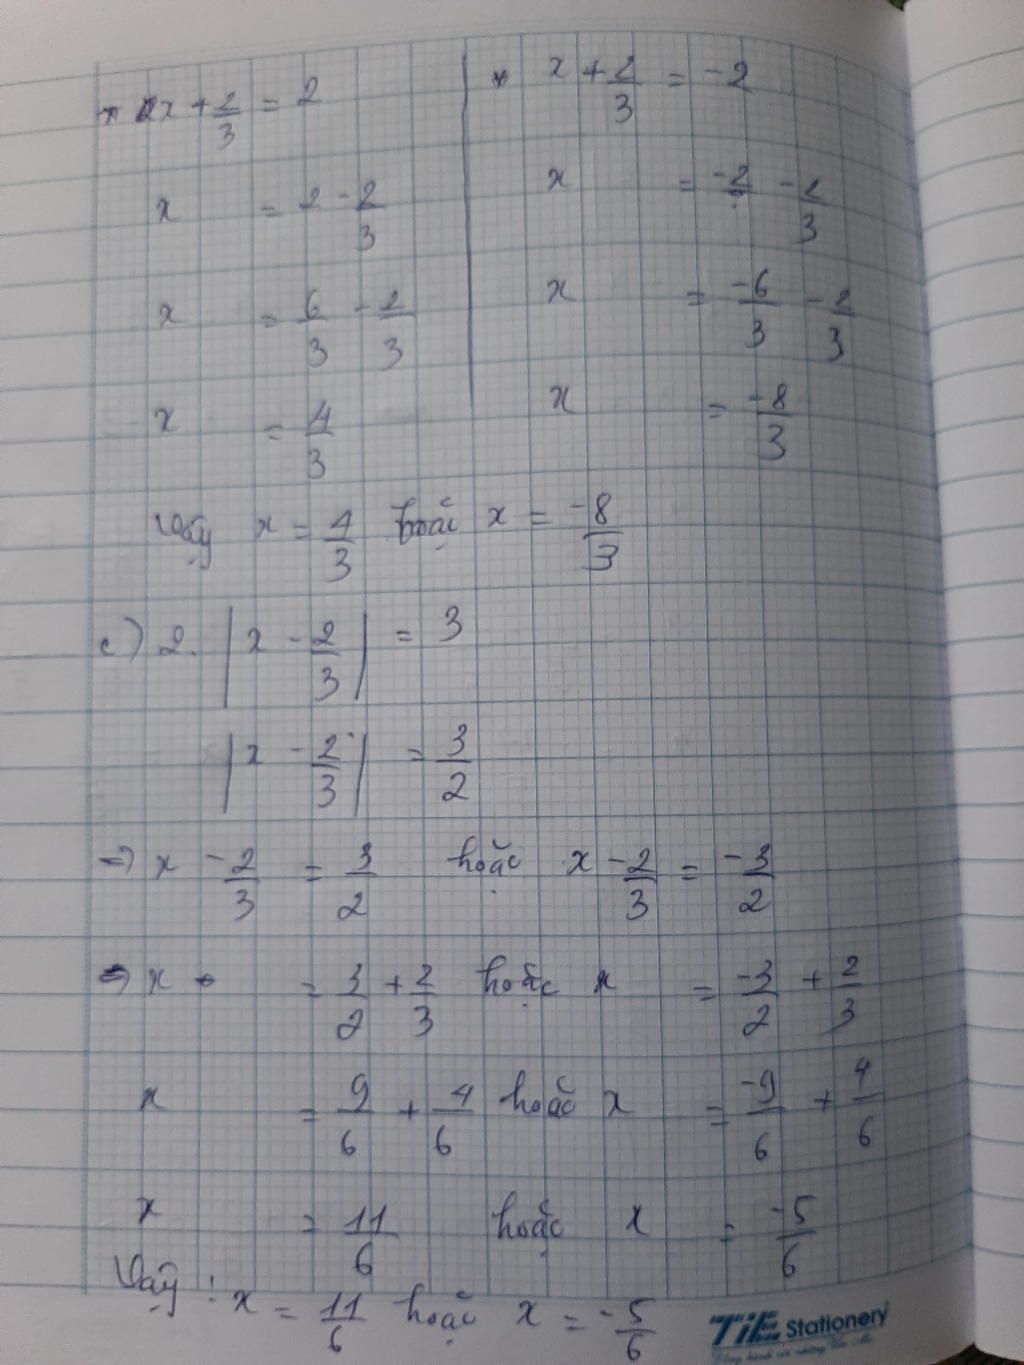 x + 2/3 = 2 | * x + 2/3 = -2
x = 2 - 2/3 | x = -2 - 2/3
x = 6/3 - 2/3 | x = -6/3 - 2/3
x = 4/3 | x = -8/3
Vậy x = 4/3 hoặc x = -8/3
c) 2. |x - 2/3| = 3
|x - 2/3| = 3/2
=> x - 2/3 = 3/2 hoặc x - 2/3 = -3/2
=> x = 3/2 + 2/3 hoặc x = -3/2 + 2/3
x = 9/6 + 4/6 hoặc x = -9/6 + 4/6
x = 11/6 hoặc x = -5/6
Vậy : x = 11/6 hoặc x = -5/6
TiE Stationery